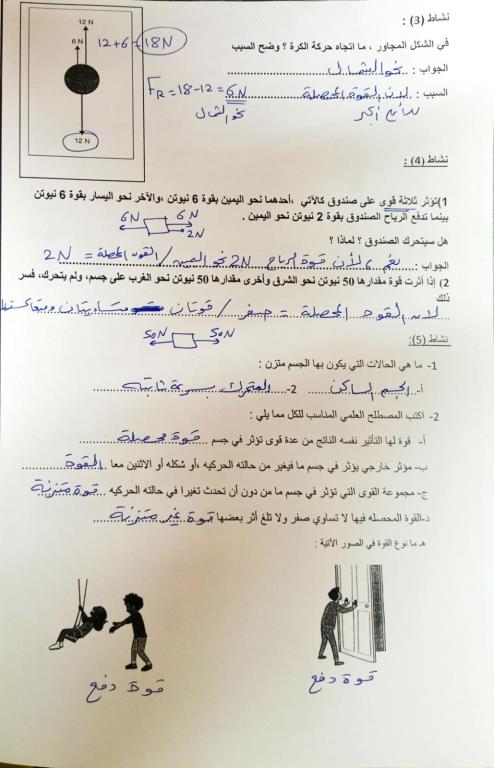 نشاط (3) :
في الشكل المجاور ، ما اتجاه حركة الكرة ؟ وضح السبب
الجواب : نحو الشمال
السبب : لان القوة المحصلة للأعلى أكبر
12 N
6 N
12+6=18N
12 N
FR = 18-12 = 6N
نحو الشمال
نشاط (4) :
1)تؤثر ثلاثة قوى على صندوق كالآتي ،أحدهما نحو اليمين بقوة 6 نيوتن ،والآخر نحو اليسار بقوة 6 نيوتن
بينما تدفع الرياح الصندوق بقوة 2 نيوتن نحو اليمين .
6N 6N
2N
هل سيتحرك الصندوق ؟ لماذا ؟
الجواب : نعم ، لأن قوة الرياح 2N نحو اليمين / القوة المحصلة = 2N
2) إذا أثرت قوة مقدارها 50 نيوتن نحو الشرق وأخرى مقدارها 50 نيوتن نحو الغرب على جسم، ولم يتحرك، فسر
ذلك
لان القوة المحصلة = صفر / قوتان متساويتان ومتعاكستان
50N 50N
نشاط (5):
1- ما هي الحالات التي يكون بها الجسم متزن :
أ- الجسم الساكن 2- المتحرك بسرعة ثابتة
2- اكتب المصطلح العلمي المناسب للكل مما يلي :
أ- قوة لها التأثير نفسه الناتج من عدة قوى تؤثر في جسم قوة محصلة
ب- مؤثر خارجي يؤثر في جسم ما فيغير من حالته الحركيه ،أو شكله أو الاثنين معا القوة
ج- مجموعة القوى التي تؤثر في جسم ما من دون أن تحدث تغيرا في حالته الحركيه قوة متزنة
د-القوة المحصله فيها لا تساوي صفر ولا تلغ أثر بعضها قوة غير متزنة
هـ ما نوع القوة في الصور الأتية :
قوة دفع
قوة دفع